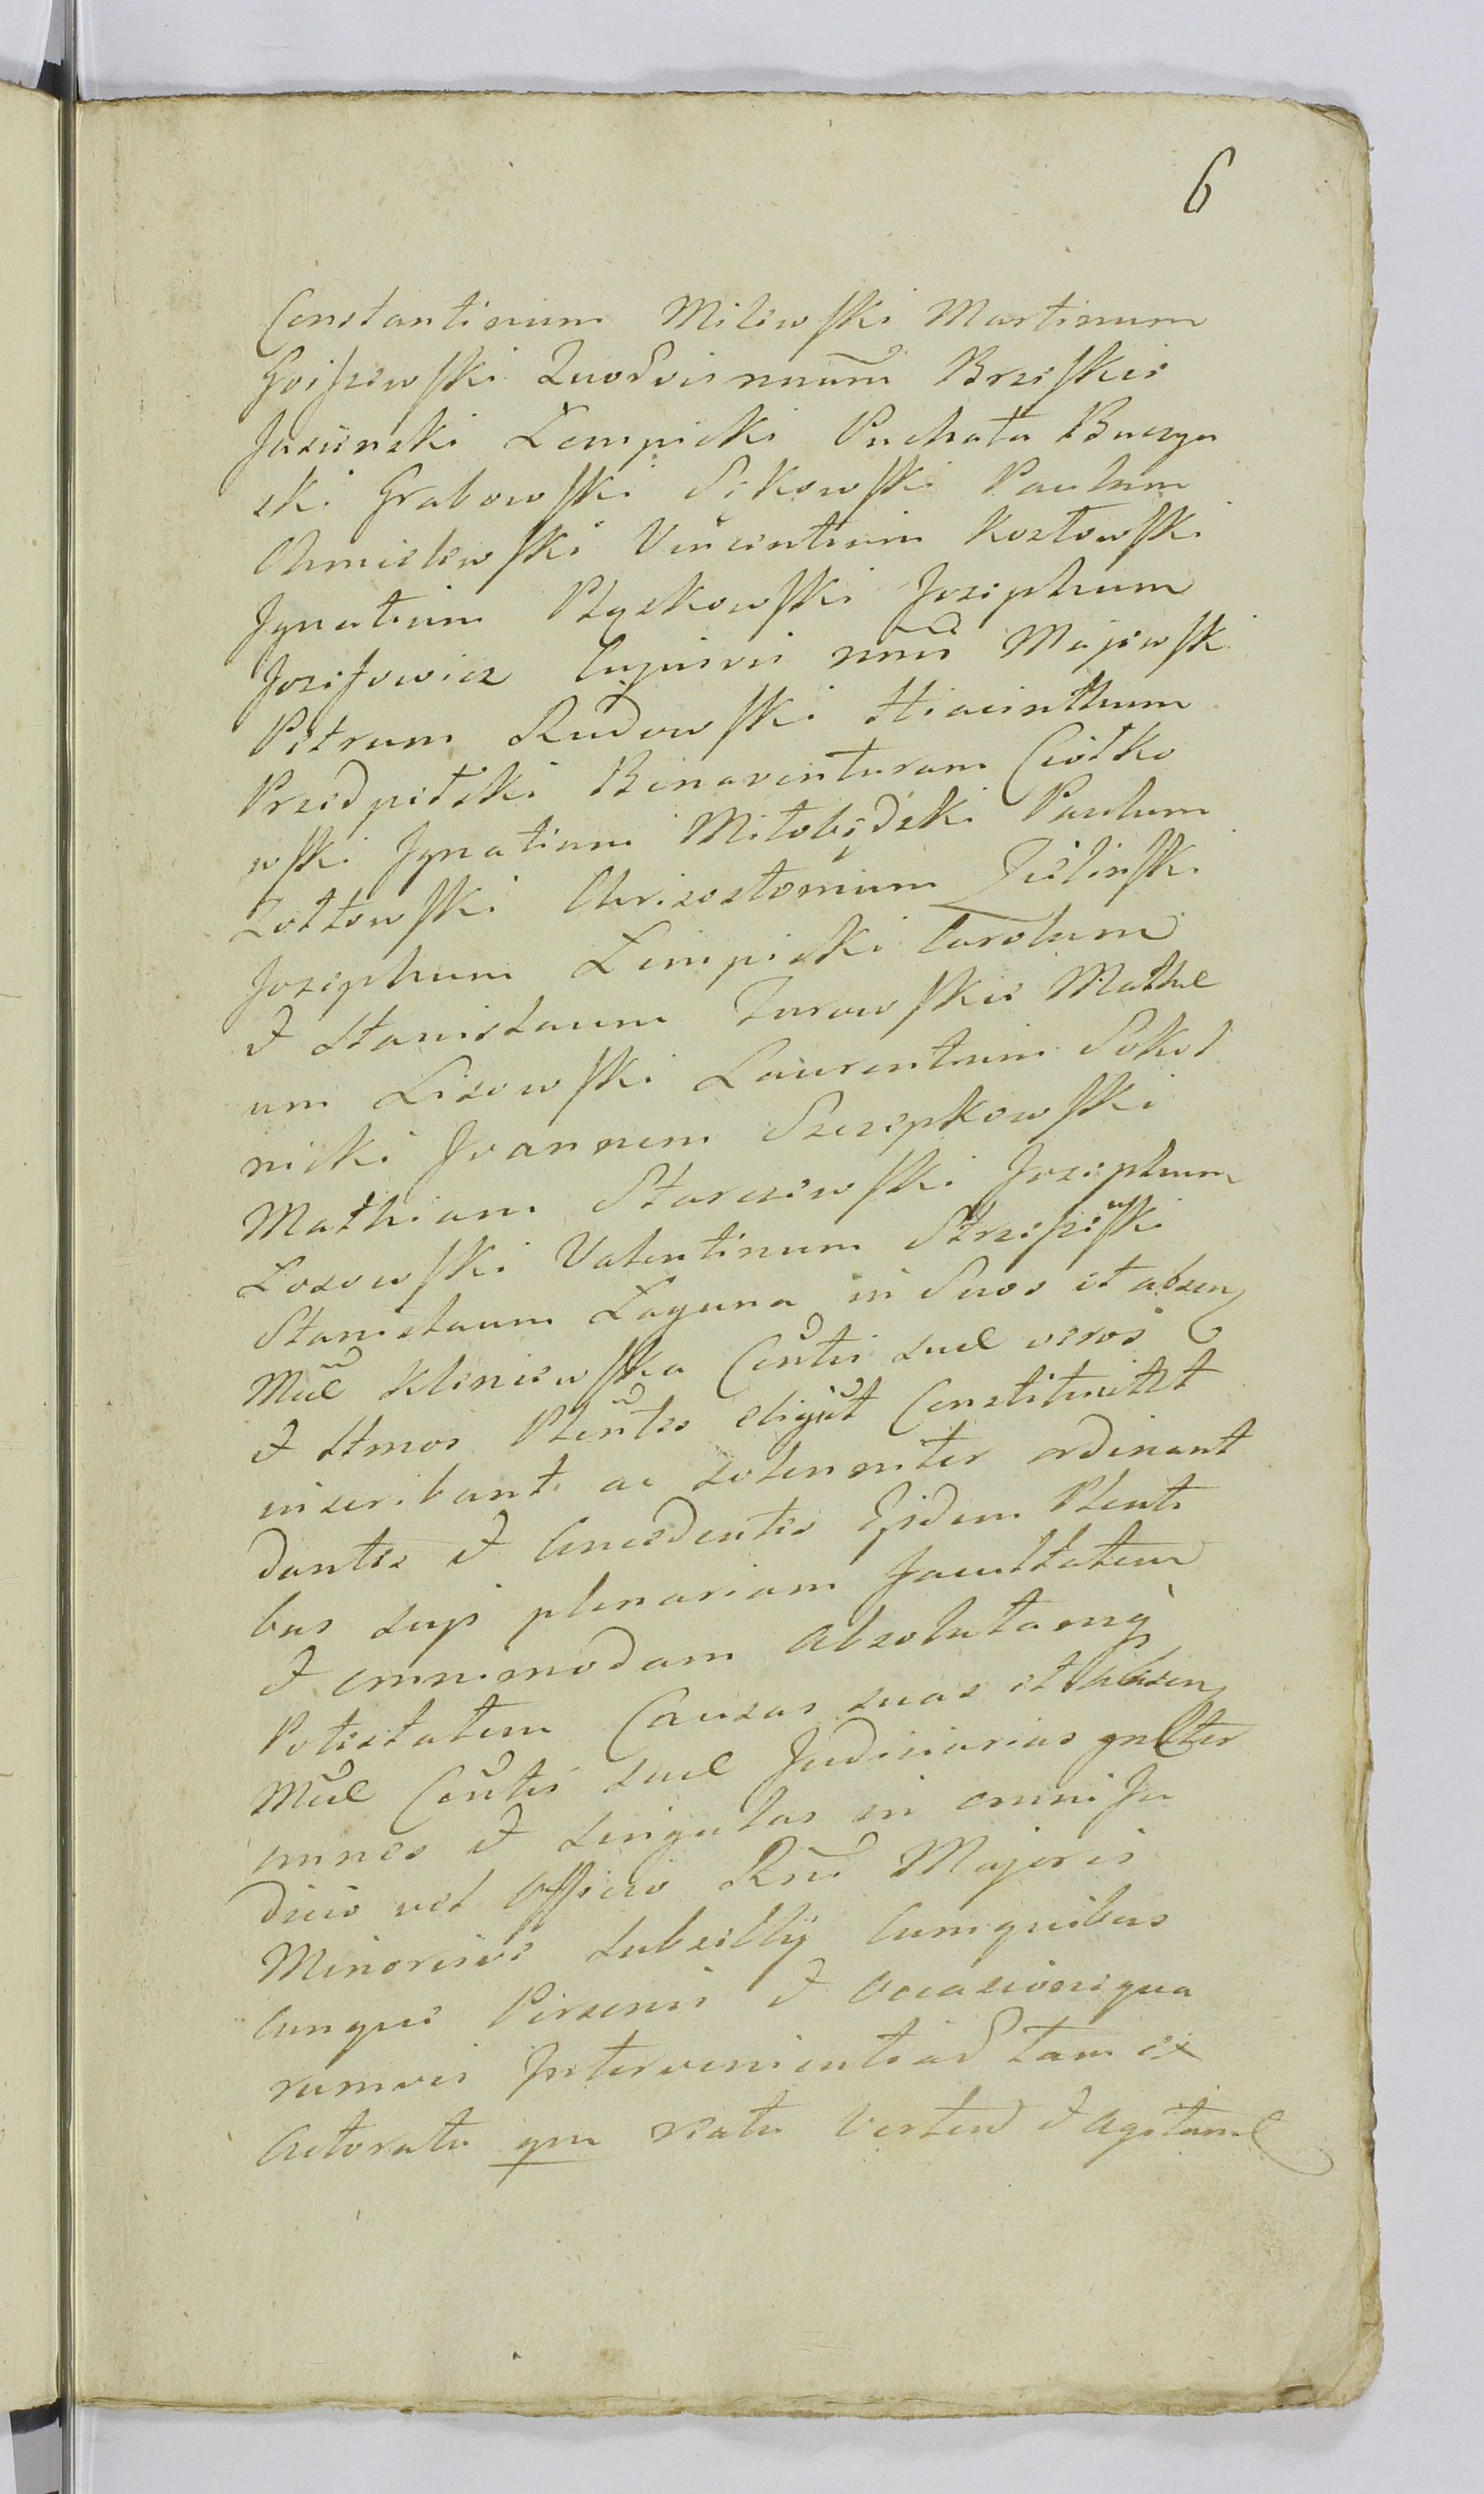 6
Constantinum Milewski Martinum
Goiszewski Quodvis nnum Brzeskie
Jasienski Lempicki Puchała Buczyn
ski Grabowski Sękowski Paulum
Chmielewski Vincentium Kozłowski
Ignatium Ptyskowski Josephum
Jozefowicz Cujusvis nnis Majewski
Petrum Rudowski Hiacinthum
Przedpełski Benaventuram Ciołko
wski Ignatium Miłobędzki Paulum
Zołtowski Chrisostomum Zielinski
Josephum Lempicki Carolum
et Stanislaum Zurowskie Mathe
um Lisowski Laurentium Sokol
nicki Joannem Szczepkowski
Mathiam Starczewski Josephum
Losowski Valentinum Strzeszewski
Stanislaum Laguna in Suos et absen
Mul Kleniewska Contis suæ veros
et Ltmos Plentes eligut Constituutt
inscribunt ac solenniter ordinant
dantes et Concedentes Ejsdem Plenti
bus suys plenariam facultatem
et omnimodam absolutamq
Potestatem Causas suas et absen
Mul Contis suæ Judiciarias gnlter
omnes et singulas in omni Ju
dicio vel Officio Rni Majoris
Minorisve subsellij Cumquibus
cunque Personis et Occasione qua
rumvis Intervenientiad tam ex
Actoratu qm reatu Vertend et Agitand